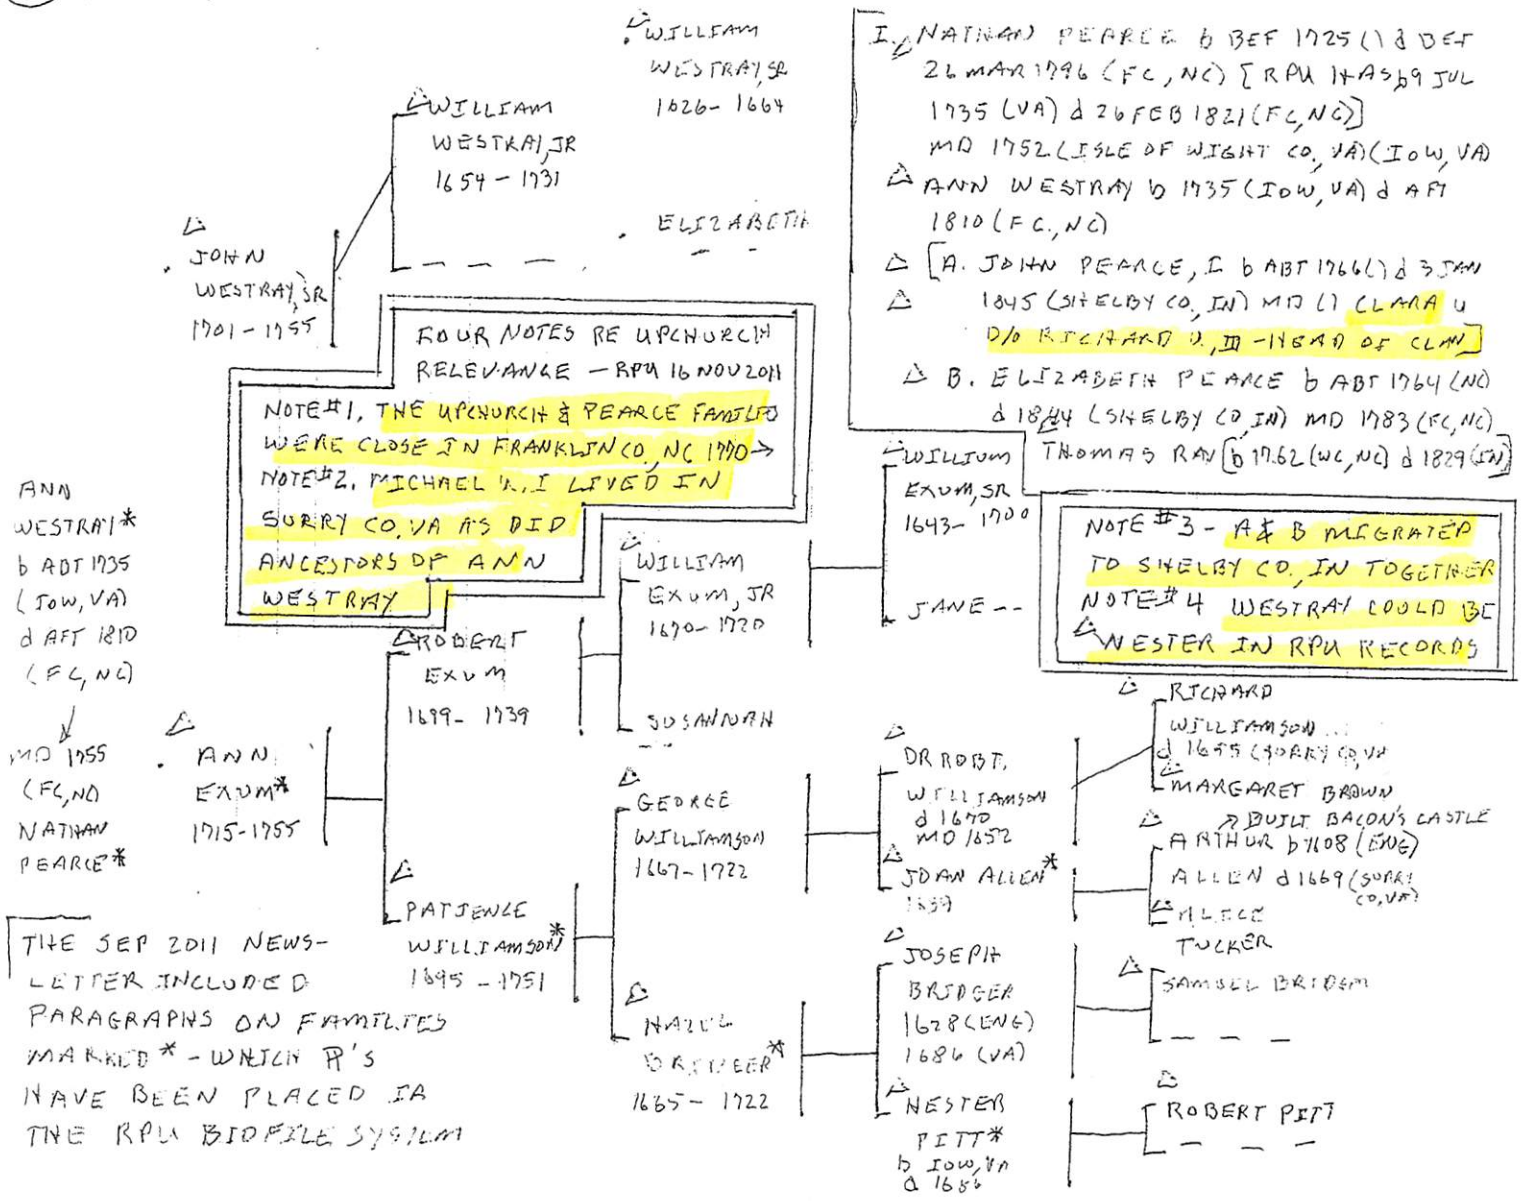 WILLIAM
WESTRAY, SR
1626- 1664
WILLIAM
WESTRAY, JR
1654 - 1731
ELIZABETH
JOHN
WESTRAY, SR
1701 - 1755
I. NATHAN PEARCE b BEF 1725 () d BEF
26 MAR 1796 (FC, NC) [RPU HAS b 9 JUL
1735 (VA) d 26 FEB 1821 (FC, NC)]
MD 1752 (ISLE OF WIGHT CO., VA) (IOW, VA)
ANN WESTRAY b 1735 (IOW, VA) d AFT
1810 (FC., NC)
[A. JOHN PEARCE, I b ABT 1766 () d 3 JAN
1845 (SHELBY CO, IN) MD () CLARA U
D/O RICHARD U., III - HEAD OF CLAN]
B. ELIZABETH PEARCE b ABT 1764 (NC)
d 1844 (SHELBY CO, IN) MD 1783 (FC, NC)
THOMAS RAY [b 1762 (WC, NC) d 1829 (IN)]
FOUR NOTES RE UPCHURCH
RELEVANCE - RPU 16 NOV 2011
NOTE #1. THE UPCHURCH & PEARCE FAMILIES
WERE CLOSE IN FRANKLIN CO, NC 1770→
NOTE #2. MICHAEL U., I LIVED IN
SURRY CO, VA AS DID
ANCESTORS OF ANN
WESTRAY
NOTE #3 - A & B MIGRATED
TO SHELBY CO., IN TOGETHER
NOTE #4 WESTRAY COULD BE
WESTER IN RPU RECORDS
ANN
WESTRAY*
b ABT 1735
(IOW, VA)
d AFT 1810
(FC, NC)
MD 1755
(FC, NC)
NATHAN
PEARCE*
ANN
EXUM*
1715-1755
ROBERT
EXUM
1699- 1739
PATIENCE
WILLIAMSON*
1695 - 1751
WILLIAM
EXUM, JR
1670- 1720
SUSANNAH
WILLIUM
EXUM, SR
1643- 1700
JANE --
GEORGE
WILLIAMSON
1667-1722
HAZUL
BRIDGER*
1665- 1722
DR ROBT.
WILLIAMSON
d 1670
MD 1652
JOAN ALLEN*
1639
JOSEPH
BRIDGER
1628 (ENG)
1686 (VA)
HESTER
PITT*
b IOW, VA
d 1686
RICHARD
WILLIAMSON
d 1655 (SURRY CO, VA
MARGARET BROWN
BUILT BACON'S CASTLE
ARTHUR b 1608 (ENG)
ALLEN d 1669 (SURRY
CO, VA)
ALICE
TUCKER
SAMUEL BRIDGER
ROBERT PITT
THE SEP 2011 NEWS-
LETTER INCLUDED
PARAGRAPHS ON FAMILIES
MARKED * - WHICH ¶'S
HAVE BEEN PLACED IN
THE RPU BIOFILE SYSTEM